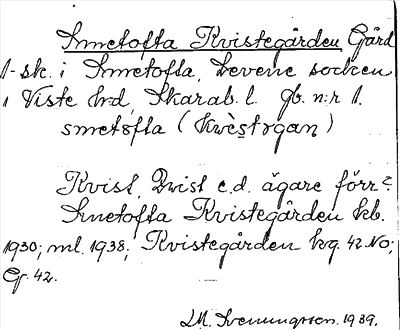 Smetofta Kvistegården Gård
1-sk. i Smetofta, Levene socken
i Viste hd, Skarab. l. gb. n:r 1.
smetofta (kwèstogan)
Kvist, Qvist e.d. ägare förr?
Smetofta Kvistegården kb.
1930; ml. 1938; Kvistegården kg. 42 NO;
Gr. 42.
Svenungsson. 1939.